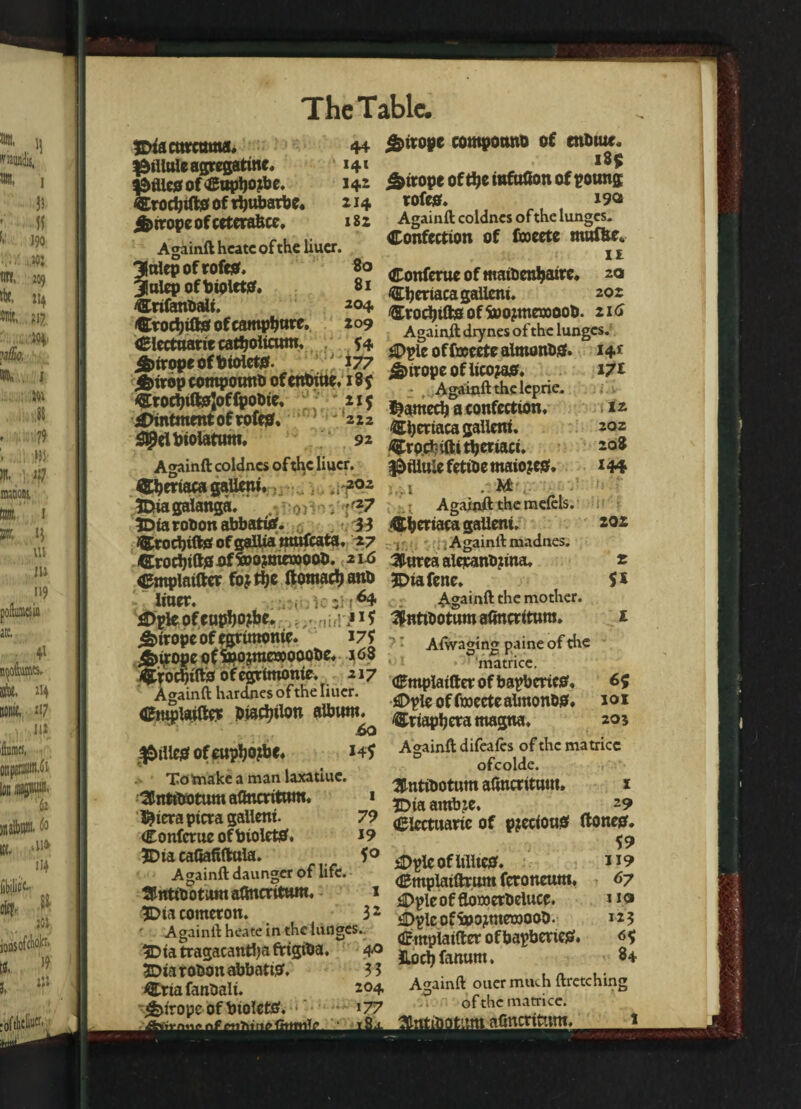 The Table.
Dia curcuma. 44
Pillule agregatine. 141
Pilles of Euphorbe. 142
Trochists of rhubarbe. 214
Sirope of ceterakce. 182
Against heate of the liuer.
Iulep of roses. 80
Iulep of violets. 81
Trisandali. 204
Trochists of camphure. 209
Electuarie catholicum, 54
Sirope of violets. 177
Sirop compound of endiue, 185
Trochists of spodie, 215
Ointment of roses. 222
Mel violatum, 92
Against coldnes of the liuer.
Theriaca galleni. 202
Dia galanga. 27
Dia rodon abbatis. 33
Trochists of gallia muscata. 27
Trochists of wormewood. 216
Emplaister for the stomach and
liuer. 64
Oyle of euphorbe. 115
Sirope of egrimonie. 175
Sirope of wormewoode. 168
Trochists of egrimonie. 217
Against hardnes of the liuer.
Emplaister diachilon album.
60
Pilles of euphorbe. 145
To make a man laxatiue.
Antidotum asincritum. 1
Hiera picra galleni. 79
Conserue of violets. 19
Dia cassiafistula. 50
Against daunger of life.
Antidotum asincritum. 1
Dia cometon. 32
Against heate in the lunges.
Dia tragacantha frigida. 40
Dia rodon abbatis. 33
Tria sandali. 204
Sirope of violets. 177
Sirope of endiue simple 184
Sirope compound of endiue.
185
Sirope of the infusion of young
roses. 190
Against coldnes of the lunges.
Confection of sweete muske.
11
Conserue of maidenhaire. 20
Theriaca galleni. 202
Trochists of wormewood. 216
Against drynes of the lunges.
Oyle of sweete almonds. 141
Sirope of licoras. 171
Against the leprie.
Hamech a confection. 12
Theriaca galleni. 202
Trochisti theriaci. 208
Pillule fetide maiores. 144
M
Against the mesels.
Theriaca galleni. 202
Against madnes.
Aurea alexandrina. 2
Dia sene. 51
Against the mother.
Antidotum asincritum. 1
Aswaging paine of the
matrice.
Emplaister of bayberies, 65
Oyle of sweete almonds. 101
Triaphera magna. 203
Against diseases of the matrice
of colde.
Antidotum asincritum. 1
Dia ambre. 29
Electuarie of precious stones.
59
Oyle of lillies. 119
Emplaistrum seroneum. 67
Oyle of flowerdeluce. 110
Oyle of wormewood. 123
Emplaister of bayberies. 65
Loch sanum. 84
Against ouer much stretching
of the matrice.
Antidotum asincritum. 1